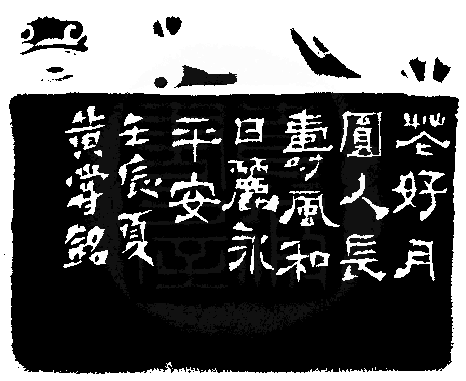 花好月
圓人長
壽風和
日麗永
平安
壬辰夏
黃嘗銘